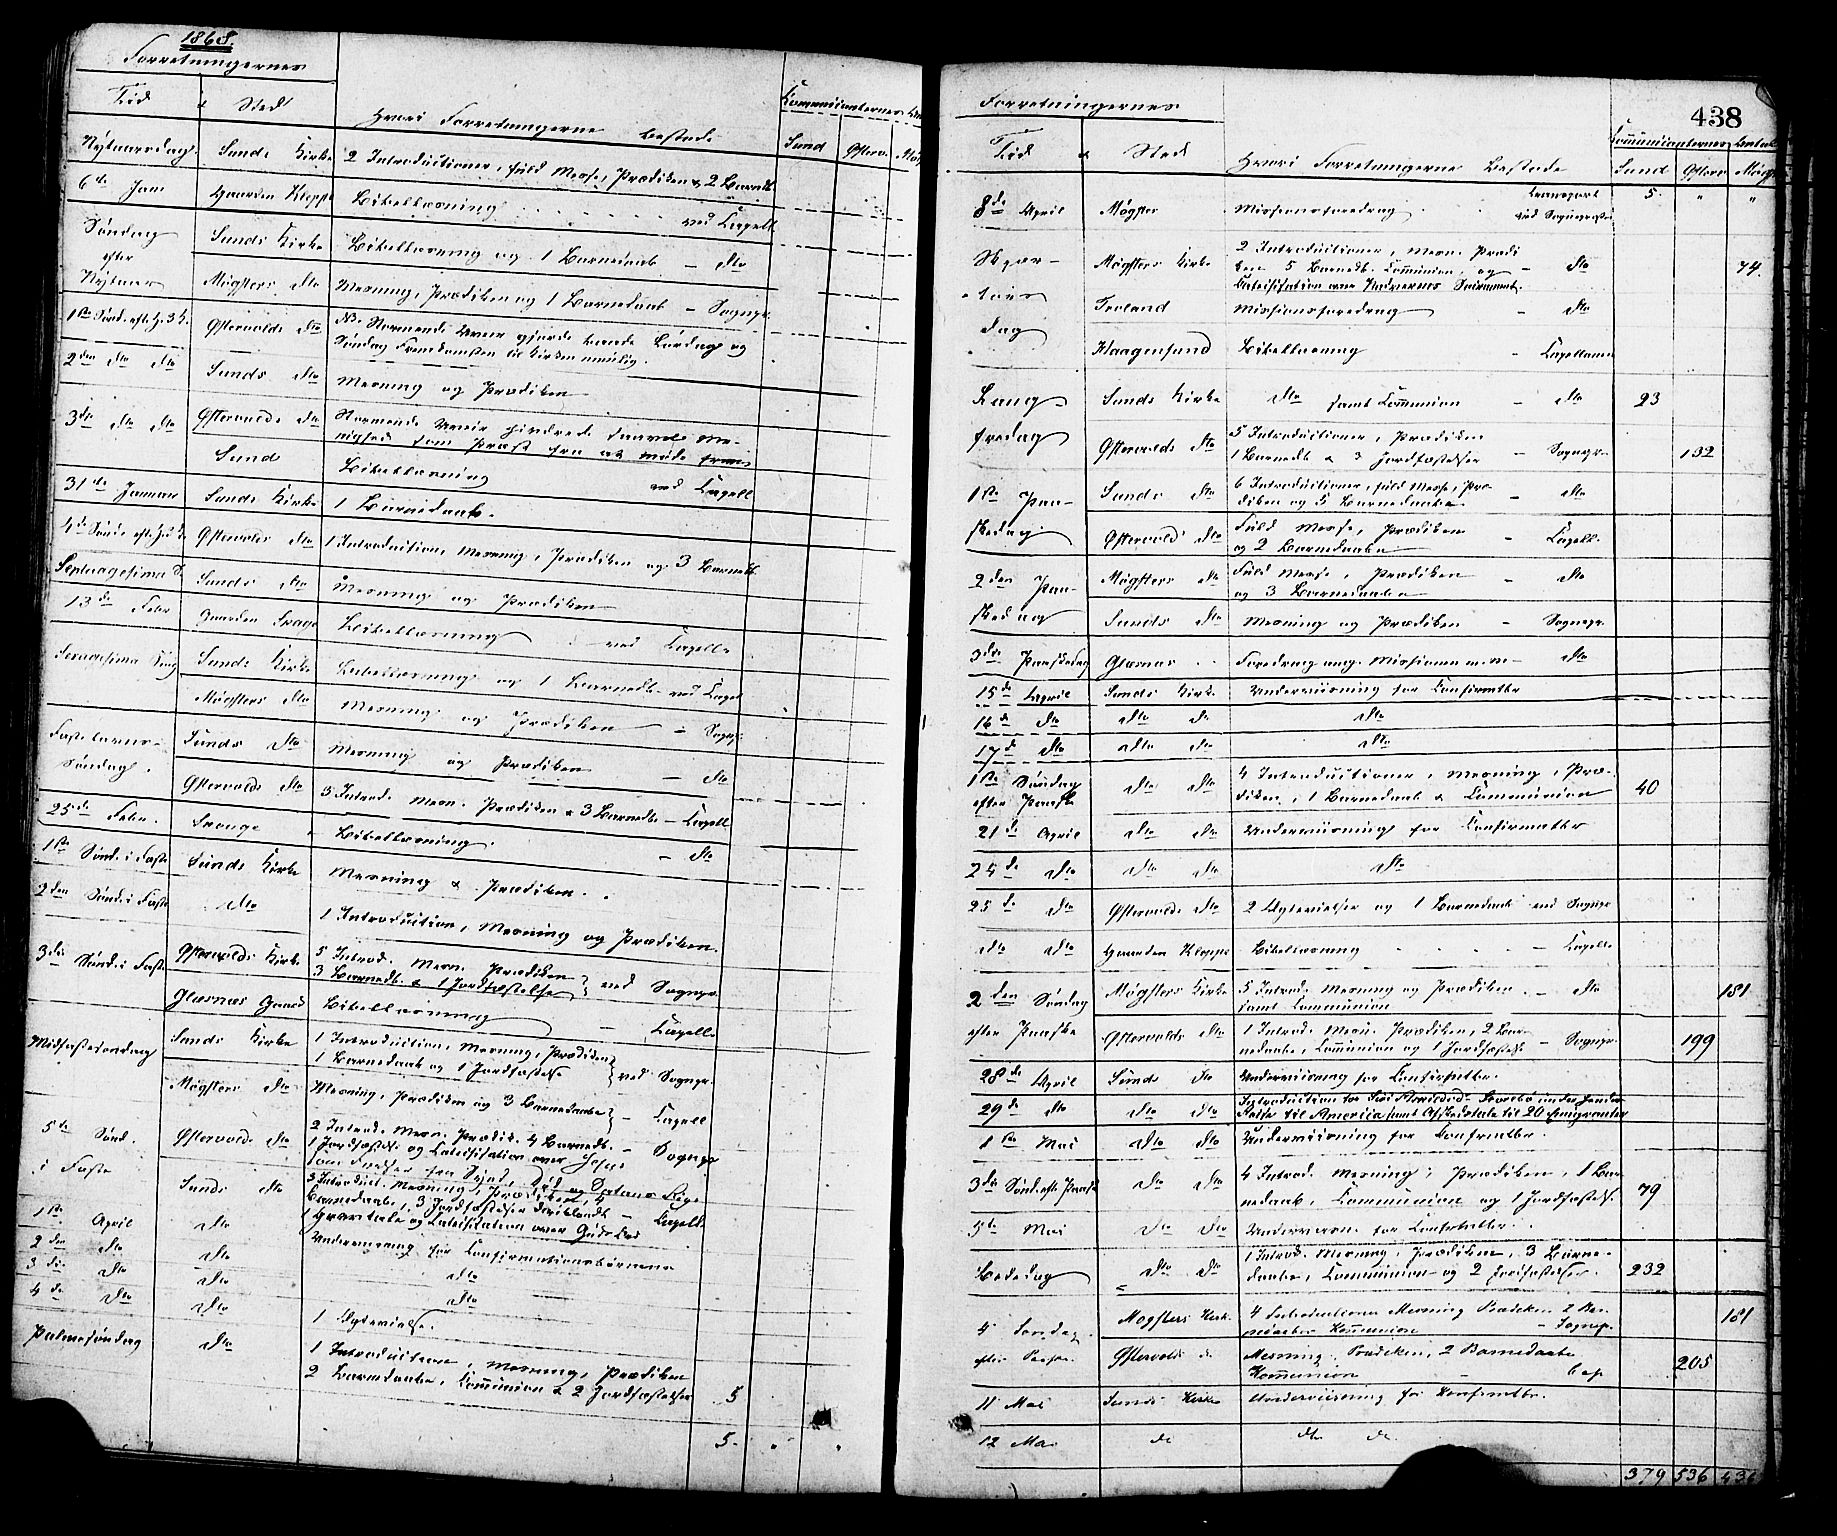 1868.
Forretningernes
Tid & Sted
Hvori Forretningerne bestode
Communicanternes
Sund Østerv. Møg
Nytaarsdag Sunds Kirke 2 Introductioner, fuld Messe, Prædiken & 2 Barnedb.
6te Jan Gaarden Kleppe Bibellæsning ved Capell
Søndag efter Nytaar
Sunds Kirke Bibellæsning og 1 Barnedaab - dto
Møgsters dto Messning, Prædiken og 1 Barnedaab - Sognepr.
1ste Sønd. eft. H. 3 K. Østervolds dto NB. Stormende Veir gjorde baade Lørdag og
Søndag Fremkomsten til Kirken umulig.
2den dto dto Sunds dto Messning og Prædiken
3die dto dto Østervolds dto Stormende Veir hindrede saavel Me-
nighed som Præst fra at møde frem
Sund Bibellæsning ved Capell
31te Januar Sunds Kirke 1 Barnedaab.
4de Sønd. eft. H. 3 K. Østervolds dto 1 Introduction, Messning, Prædiken og 3 Barnedb.
Septuagesima S. Sunds dto Messning og Prædiken
13de Febr Gaarden Skage Bibellæsning ved Capell
Sexagesima Sdag Sunds Kirke Bibellæsning og 1 Barnedb. ved Capel
Møgsters dto Messning og Prædiken - Sognpr
Fastelavns-
Søndag.
Sunds dto Messning og Prædiken - dto
Østervolds dto 5 Introd. Messn. Prædiken & 3 Barnedb. - Capell
25de Febr. Skouge Bibellæsning. - dto
1ste Sønd. i Faste Sunds Kirke Messning & Prædiken.
2den Sønd. i Faste dto 1 Introduction, Messning og Prædiken.
3die Sønd. i Faste Østervolds Kirke 5 Introd. Messn. Prædiken
3 Barnedb. & 1 Jordfæstelse } ved Sognepr.
Glesnæs Gaard Bibellæsning - Capell
Midfastesøndag Sunds Kirke 1 Introduction, Messning, Prædiken
1 Barnedaab og 1 Jordfæstelse } ved Sognepr.
Møgsters dto Messning, Prædiken og 3 Barnedaabe } - Capell
5te Sønd.
i Faste
Østervolds dto 2 Introd. Messn. Prædik. 4 Barnedb.
1 Jordfæstelse og Catechisation over Jesus - Sognepr
som Frelser fra Synd, Død og Satans Rige
Sunds dto 3 Introduct. Messning, Prædiken, 4
Barnedaabe, 3 Jordfæstelser - Capell.
1 Gravtale og Catechisation over Guds
1ste April dto Underviisning for Confirmationsbørnene
2den dto dto dto
3die dto dto dto
4de dto dto 1 Vielse.
Palmesøndag dto 1 Introduction, Messning, Prædiken
2 Barnedaabe, Communion & 2 Jordfæstelser 5
5. " "
438
Forretningernes
Tid & Sted
Hvori Forretningerne bestode
Communicanternes Antal
Sund Østerv Møgst
transport 5. " "
8de April Møgster Missionsforedrag ved Sognepræsten
Skjær-
tors
dag
Møgsters Kirke 2 Introductioner, Messn. Prædi
ken 5 Barnedb. Communion, og - dto 74.
Catechisation over Nadverens Sacrament.
Troland Missionsforedrag - dto
Klaagensund Bibellæsning - Capellanen
Lang-
fredag
Sunds Kirke dto samt Communion - dto 23
Østervolds dto 5 Introductioner, Prædiken
1 Barnedb & 3 Jordfæstelser - Sognepr. 132
1ste Paa-
skedag
Sunds dto 6 Introductioner, fuld Messe, Præ-
diken og 5 Barnedaabe - dto
Østervolds dto Fuld Messe, Prædiken
og 2 Barnedaabe - Capell.
2den Paa-
skedag
Møgsters dto Fuld Messe, Prædiken
og 3 Barnedaabe - dto
Sunds dto Messning og Prædiken - Sognepr.
3die Paaskedag Glesnæs Foredrag ang. Missionen m.m - dto
15de April Sunds Kirke Underviisning for Confirmatbr
16de dto dto dto dto
17de dto dto dto dto
1ste Søndag
efter Paaske dto dto 4 Introductioner, Messning, Præ-
diken, 1 Barnedaab & Communion 40
21de April dto dto Underviisning for Confirmatbr
24de dto dto dto dto
25de dto Østervolds dto 2 Ægtevielser og 1 Barnedaab ved Sognpr
dto dto Gaarden Kleppe Bibellæsning - Capell
2den Søndag
efter Paaske
Møgsters Kirke 5 Introd. Messning og Prædiken - dto 181
samt Communion
Østervolds dto 1 Introd. Messn. Prædiken, 2 Bar-
nedaabe, Communion og 1 Jordfæstelse - Sognepr. 199
28de April Sunds dto Underviisning for Confirmatbr.
29de dto dto dto Introduction for
Reise til America samt Afskedstale til 20 Emigranter
1ste Mai dto dto Underviisning for Confrmatbr.
3die Sønd. eft. Paaske dto dto 4 Introd. Messning, Prædiken, 1 Bar-
nedaab, Communion og 1 Jordfæstelse. 79
5te Mai dto dto Underviisn. for Confirmatbr.
Bededag dto dto 1 Introd. Messning, Prædiken, 3 Barne-
daabe, Communion og 2 Jordfæstelser. 232
4 Søndag
efter Paaske
Møgsters Kirk. 4 Introductioner Messning Prædiken 2 Bar-
nedaaber Kommunion - Sognepr. 181
Østervolds dto Messning. Prædiken, 2 Barnedaabe
Kommunion - Cap. 205
11 Mai Sunds Kirke Underviisning for Konfirmatbr.
12 Mai do do do
379 536 436